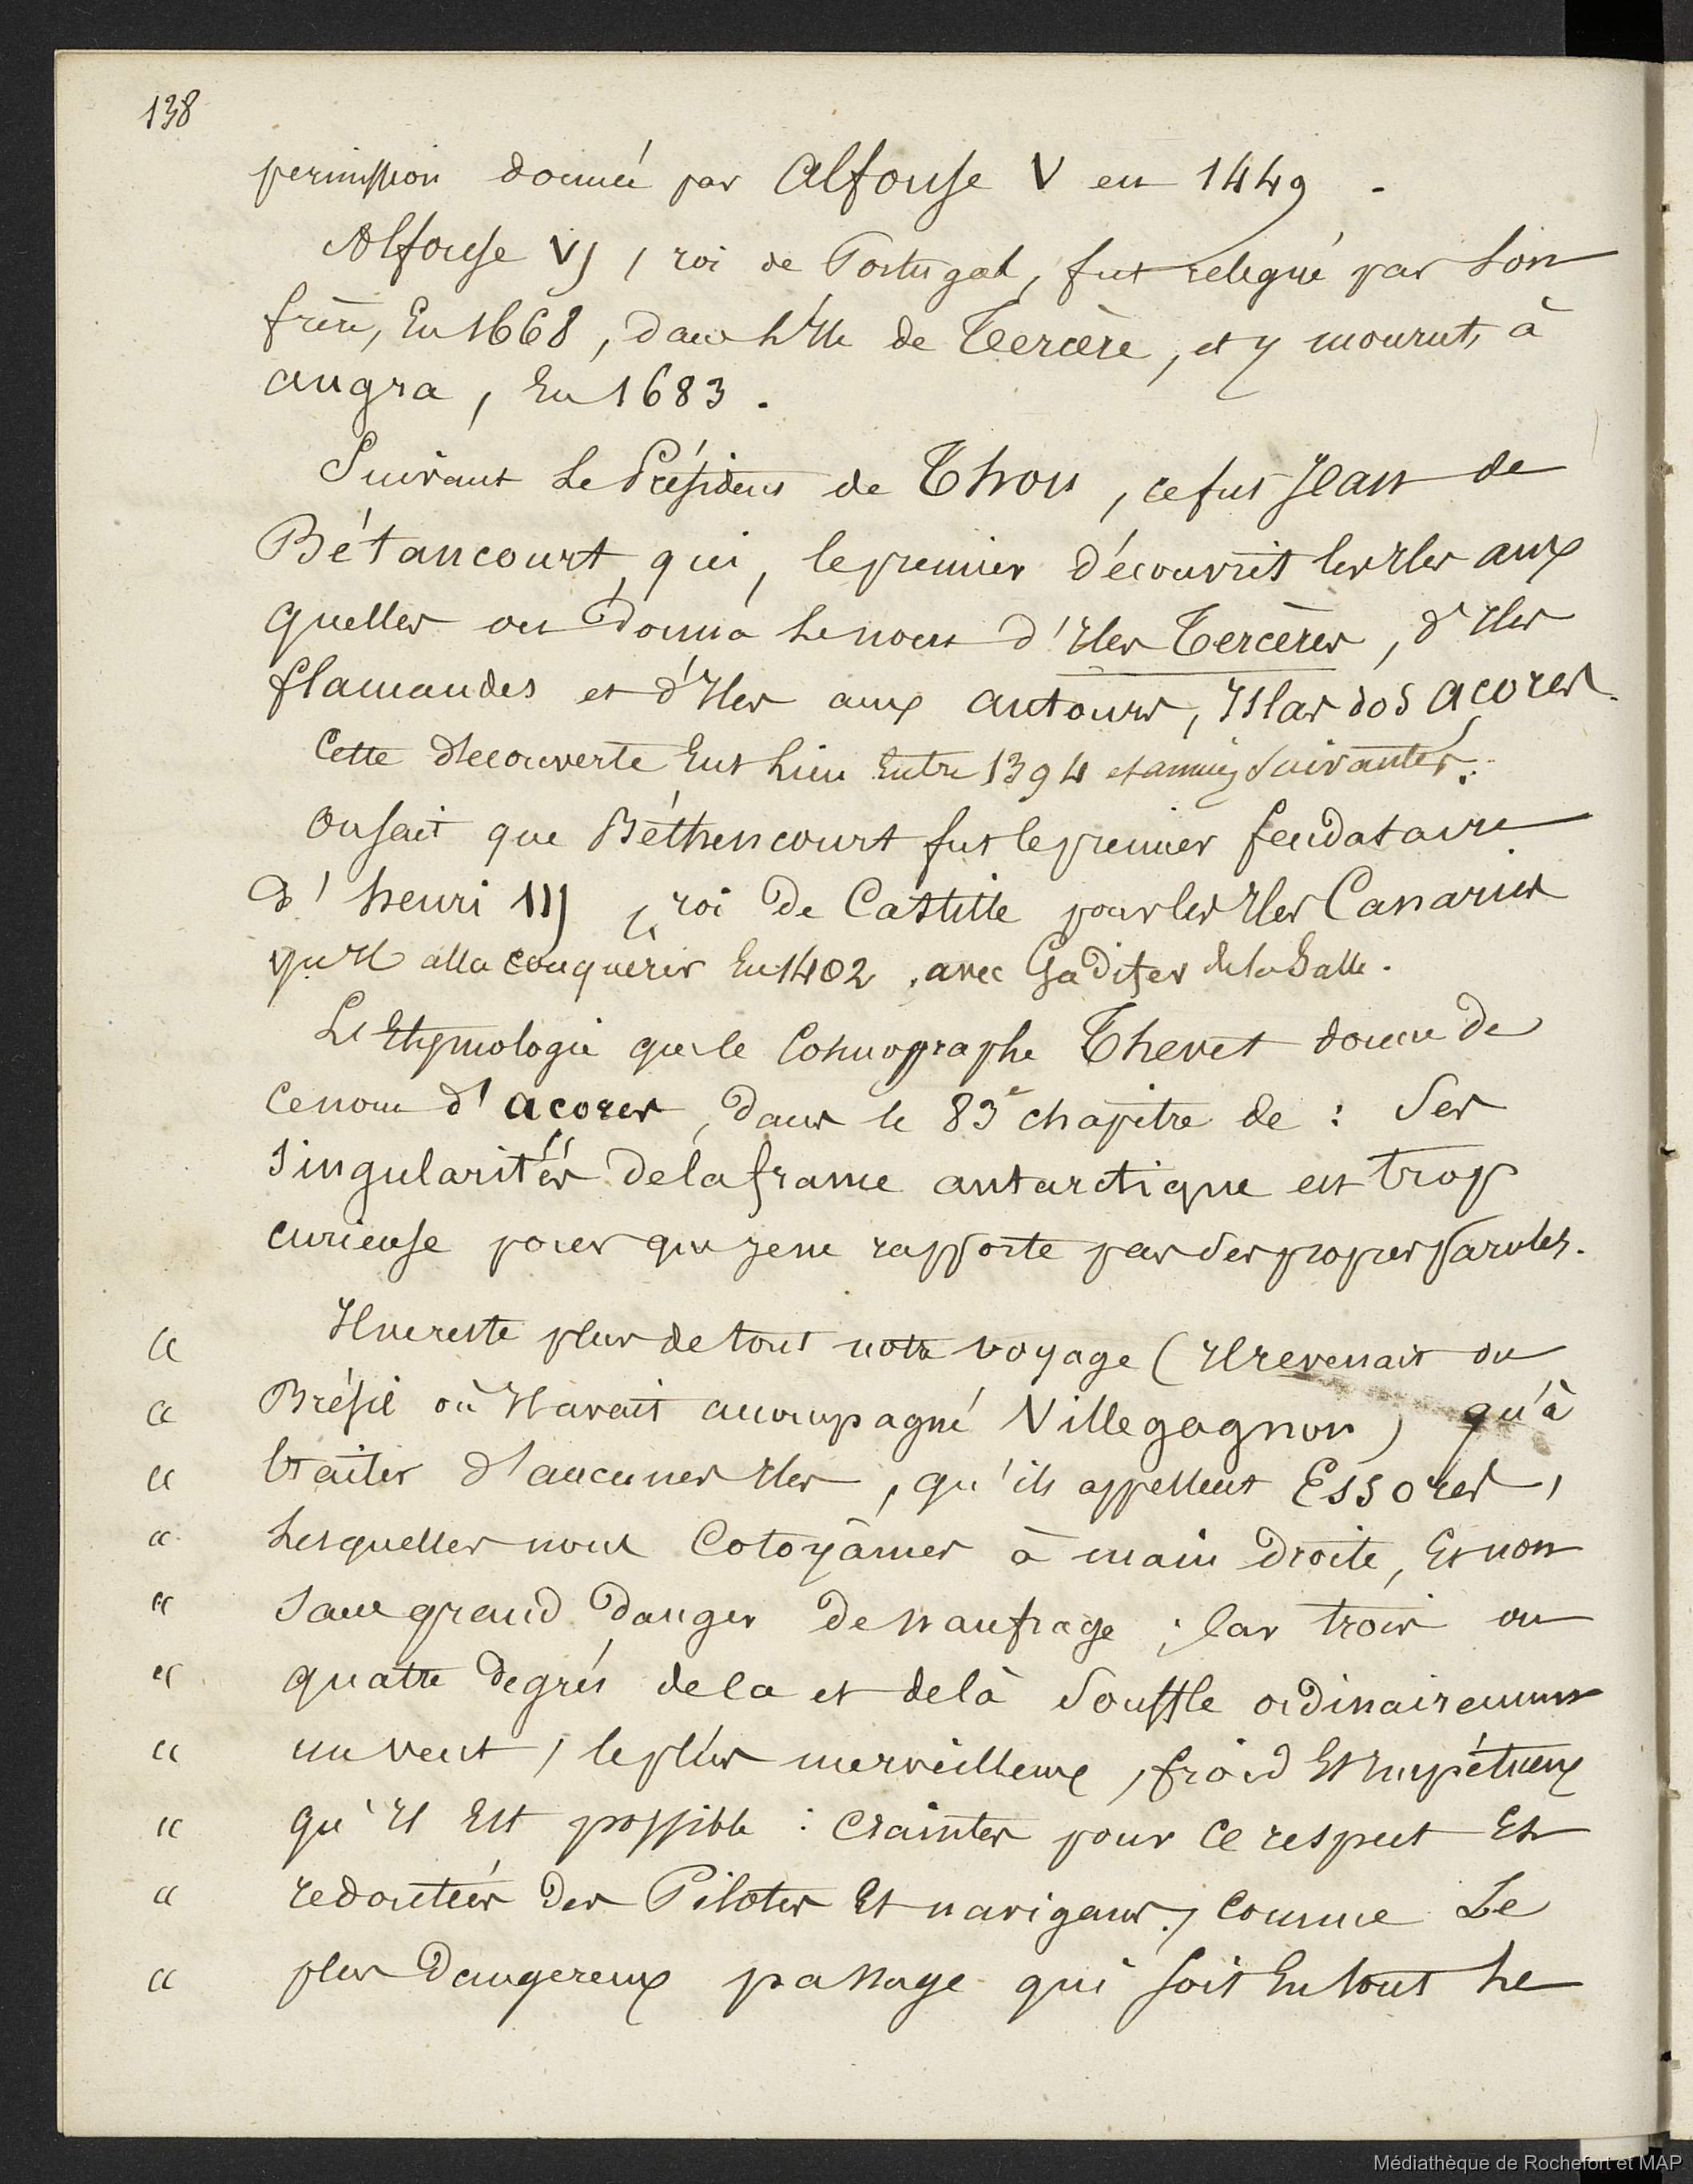 138
permission donnée par Alfonse V en 1449.
Alfonse VI, roi de Portugal, fut relégué par son
frère, En 1668, dans l'Ile de Tercère, et y mourut, à
angra, En 1683.
Suivant Le Président de Thou, ce fut Jean de
Bétancourt, qui, le premier découvrit les Iles aux
quelles on donna Le nom d'Iles Tercères, d'Iles
flamandes et d'Iles aux autours, Islas dos açores.
Cette découverte Eut Lieu Entre 1394 et années suivantes.
On sait que Béthencourt fut le premier feudataire
d'henri III, roi de Castille pour les Iles Canaries
qu'Il alla conquérir En 1402, avec Gadifer de la Salle.
L'Etymologie que le Cosmographe Thevet donne de
ce nom d'açores, dans le 83e chapitre de : Ses
singularités de la france antarctique est trop
curieuse pour que je ne rapporte pas ses propres paroles.
" Il ne reste plus de tout notre voyage (Il revenait du
" Brésil où Il avait accompagné Villegagnon) qu'à
" traiter d'aucunes Iles, qu'ils appellent Essores,
" Lesquelles nous Cotoyâmes à main droite, Et non
" sans grand danger de naufrage ; Car trois ou
" quatre degrés deça et delà souffle ordinairement
" un vent, le plus merveilleux, froid Et Impétueux
" qu'Il Est possible : Craintes pour ce respect Et
" redoutées des Pilotes Et navigans, comme Le
" plus dangereux passage qui soit En tout Le
Médiathèque de Rochefort et MAP